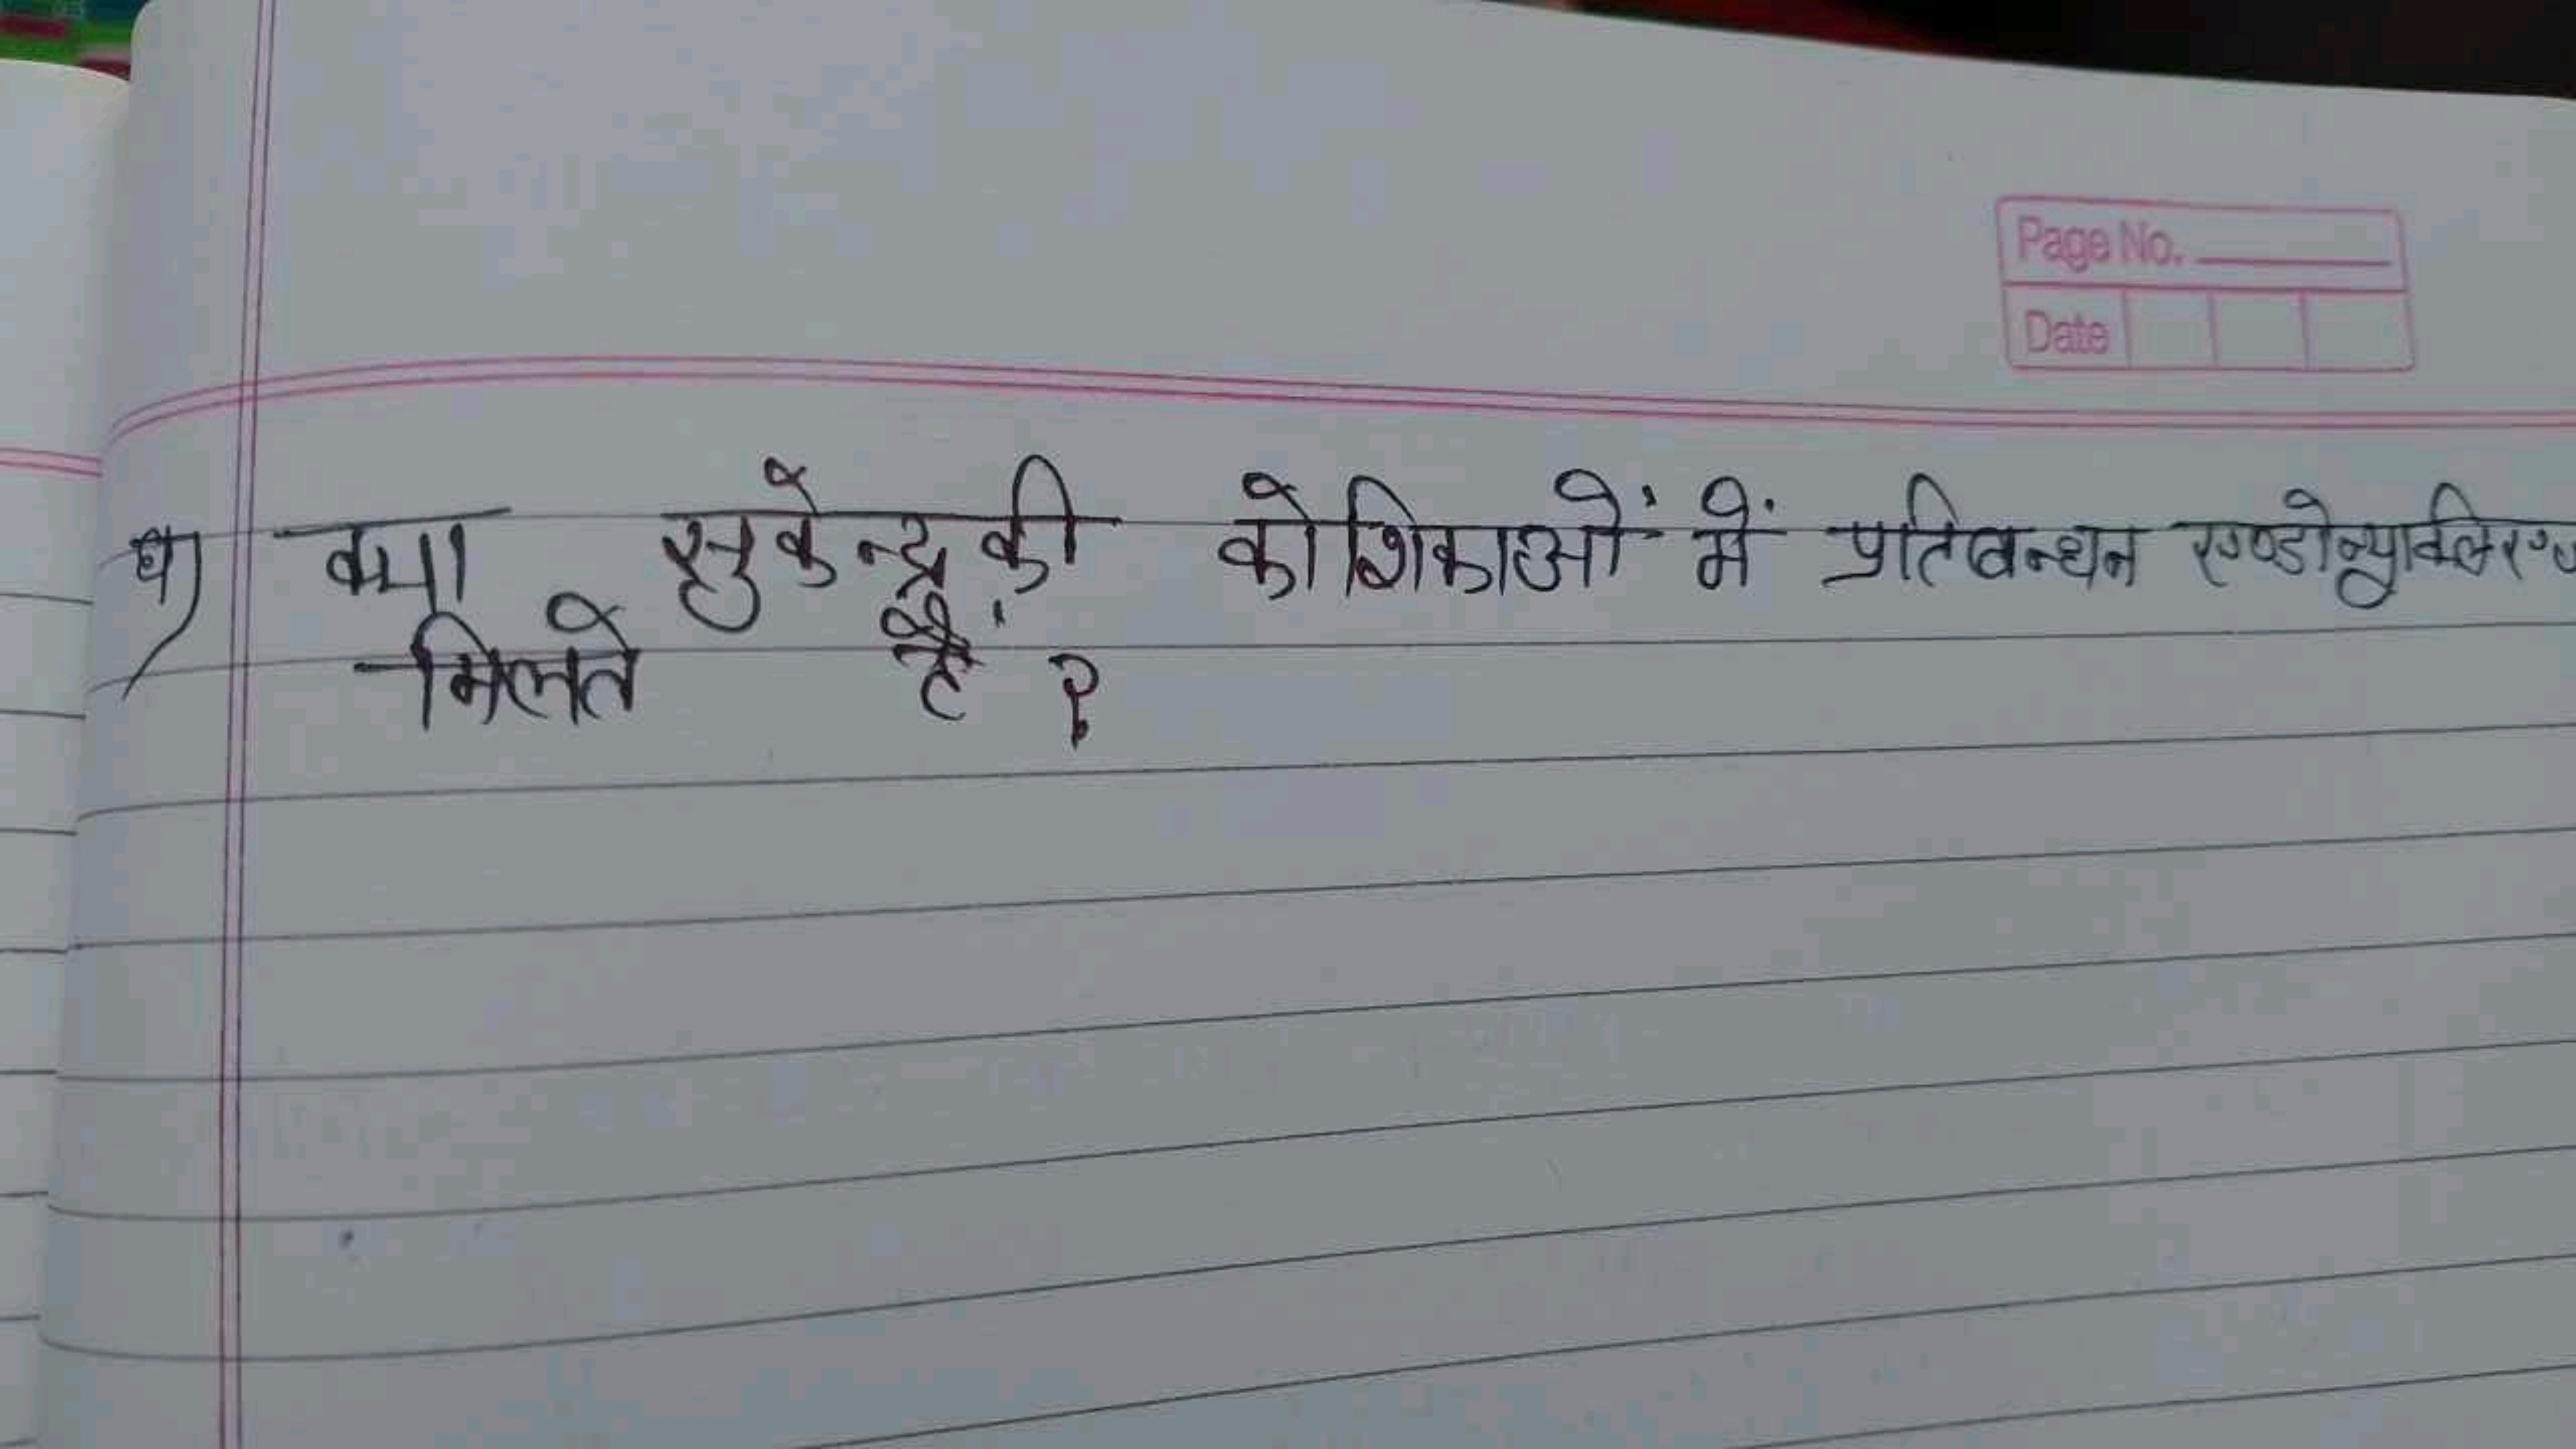 Page No.
Date
घ) क्या सुकेन्द्रकी कोशिकाओं में प्रतिबन्धन
मिलते हैं ?